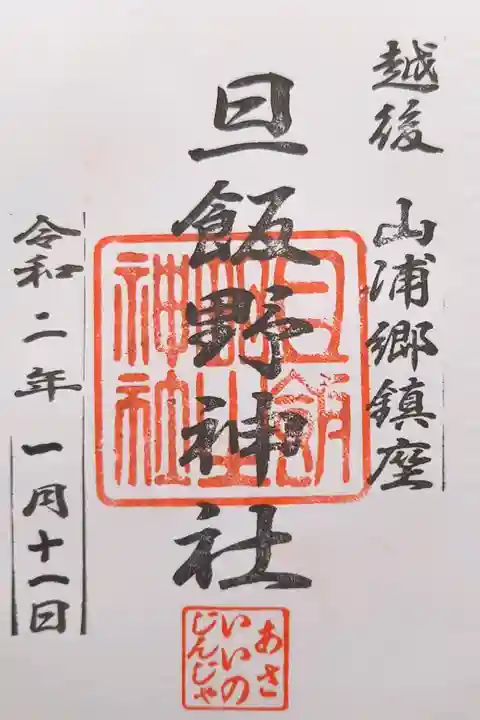 越後 山浦郷鎮座
旦飯野神社
旦飯
野之
神社
令和二年 一月十一日
あさ
いいの
じんじゃ